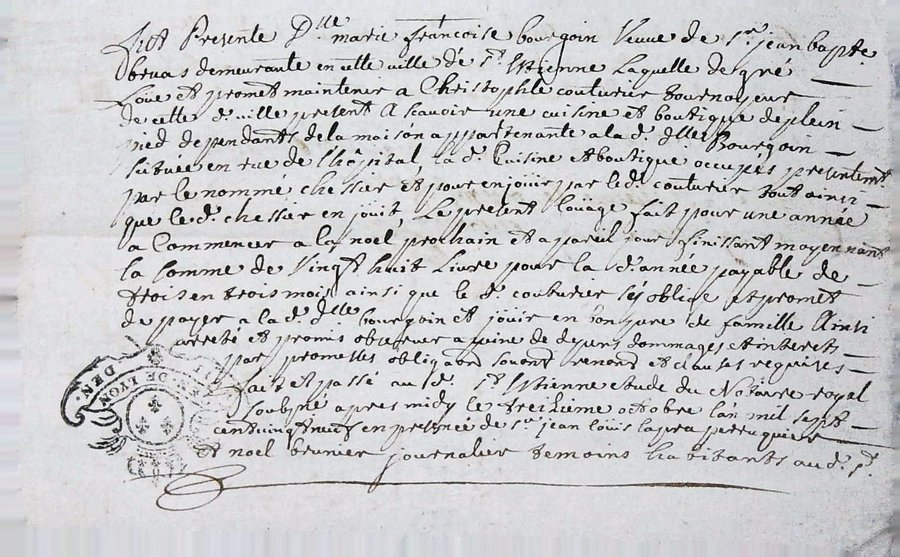 fut Presente D.lle marie francoise bourgoin veuve de s.r jean bap.te
bruas demeurante en cette ville de s.t Estienne Laquelle de gré
Loue et promet maintenir a Christophle couturier Tournoyeur
de cette d. ville present A Scavoir une cuisine et boutique de plein
pied dependants de la maison appartenante a la d. D.lle Bourgoin
Située en rue de lhôpital la d. Cuisine et boutique occupés presentemt
par le nommé chessier et pour en joüir par le d. couturier tout ainsi
que le d. chessier en joüit, Le present loüage fait pour une année
a Commencer a la noel prochain et a pareil jour finissant moyennant
la Somme de Vingt huit Livre pour la d. année payable de
trois en trois mois ainsi que le d. couturier s'y oblige et promet
de payer a la d. d.lle bourgoin et joüir en bon pere de famille Ainsi
arreté et promis observer a peine de depens dommages et interets
par promesses oblig.aons soumis. renon.t et clauses requises
fait et passé au d. S.t Estienne etude du Notaire royal
Soubné apres midy le treizieme octobre l'an mil sept
cent vingt neuf en presence de s.r jean louis lapra perruquier
et noel brunier journalier temoins habitants au d. s.t
DEN. DE LYON